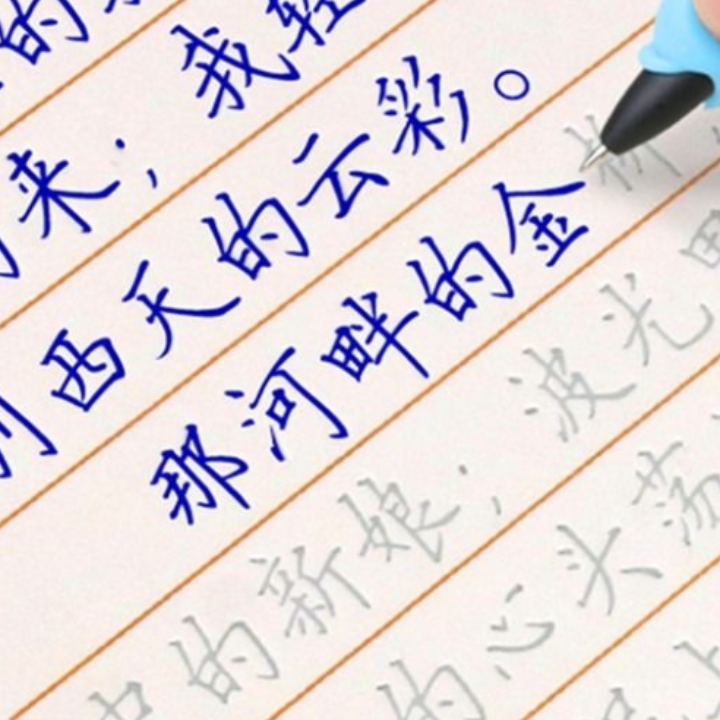 的
来；我轻
西天的云彩。
那河畔的金柳
的新娘；波光
的心头荡